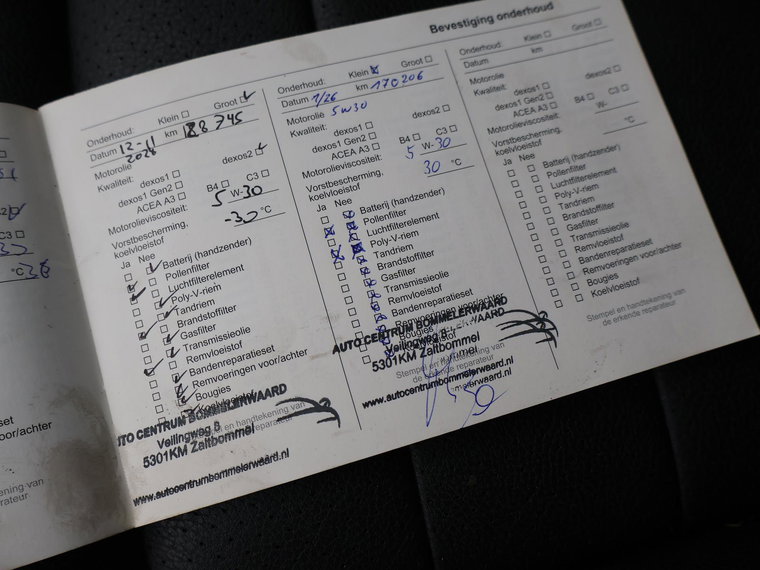 Bevestiging onderhoud
2
C3
°C 36
voor/achter
Onderhoud: Klein Groot
Datum 12-11 km 188745
2026
Motorolie
Kwaliteit: dexos1 dexos2
dexos1 Gen2
ACEA A3 B4 C3
Motorolieviscositeit: 5 W-30
Vorstbescherming,
koelvloeistof -30 °C
Ja Nee
Batterij (handzender)
Pollenfilter
Luchtfilterelement
Poly-V-riem
Tandriem
Brandstoffilter
Gasfilter
Transmissieolie
Remvloeistof
Bandenreparatieset
Remvoeringen voor/achter
Bougies
Koelvloeistof
Stempel en handtekening van
AUTO CENTRUM BOMMELERWAARD
Veilingweg 8
5301KM Zaltbommel
www.autocentrumbommelerwaard.nl
Onderhoud: Klein Groot
Datum 1/26 km 170206
Motorolie 5w30
Kwaliteit: dexos1 dexos2
dexos1 Gen2
ACEA A3 B4 C3
Motorolieviscositeit: 5 W-30
Vorstbescherming,
koelvloeistof 30 °C
Ja Nee
Batterij (handzender)
Pollenfilter
Luchtfilterelement
Poly-V-riem
Tandriem
Brandstoffilter
Gasfilter
Transmissieolie
Remvloeistof
Bandenreparatieset
Remvoeringen voor/achter
Bougies
AUTO CENTRUM BOMMELERWAARD
Veilingweg 8
5301KM Zaltbommel
Stempel en handtekening van
de erkende reparateur
www.autocentrumbommelerwaard.nl
Onderhoud: Klein Groot
Datum km
Motorolie
Kwaliteit: dexos1 dexos2
dexos1 Gen2
ACEA A3 B4 C3
Motorolieviscositeit: W-
Vorstbescherming,
koelvloeistof °C
Ja Nee
Batterij (handzender)
Pollenfilter
Luchtfilterelement
Poly-V-riem
Tandriem
Brandstoffilter
Gasfilter
Transmissieolie
Remvloeistof
Bandenreparatieset
Remvoeringen voor/achter
Bougies
Koelvloeistof
Stempel en handtekening van
de erkende reparateur